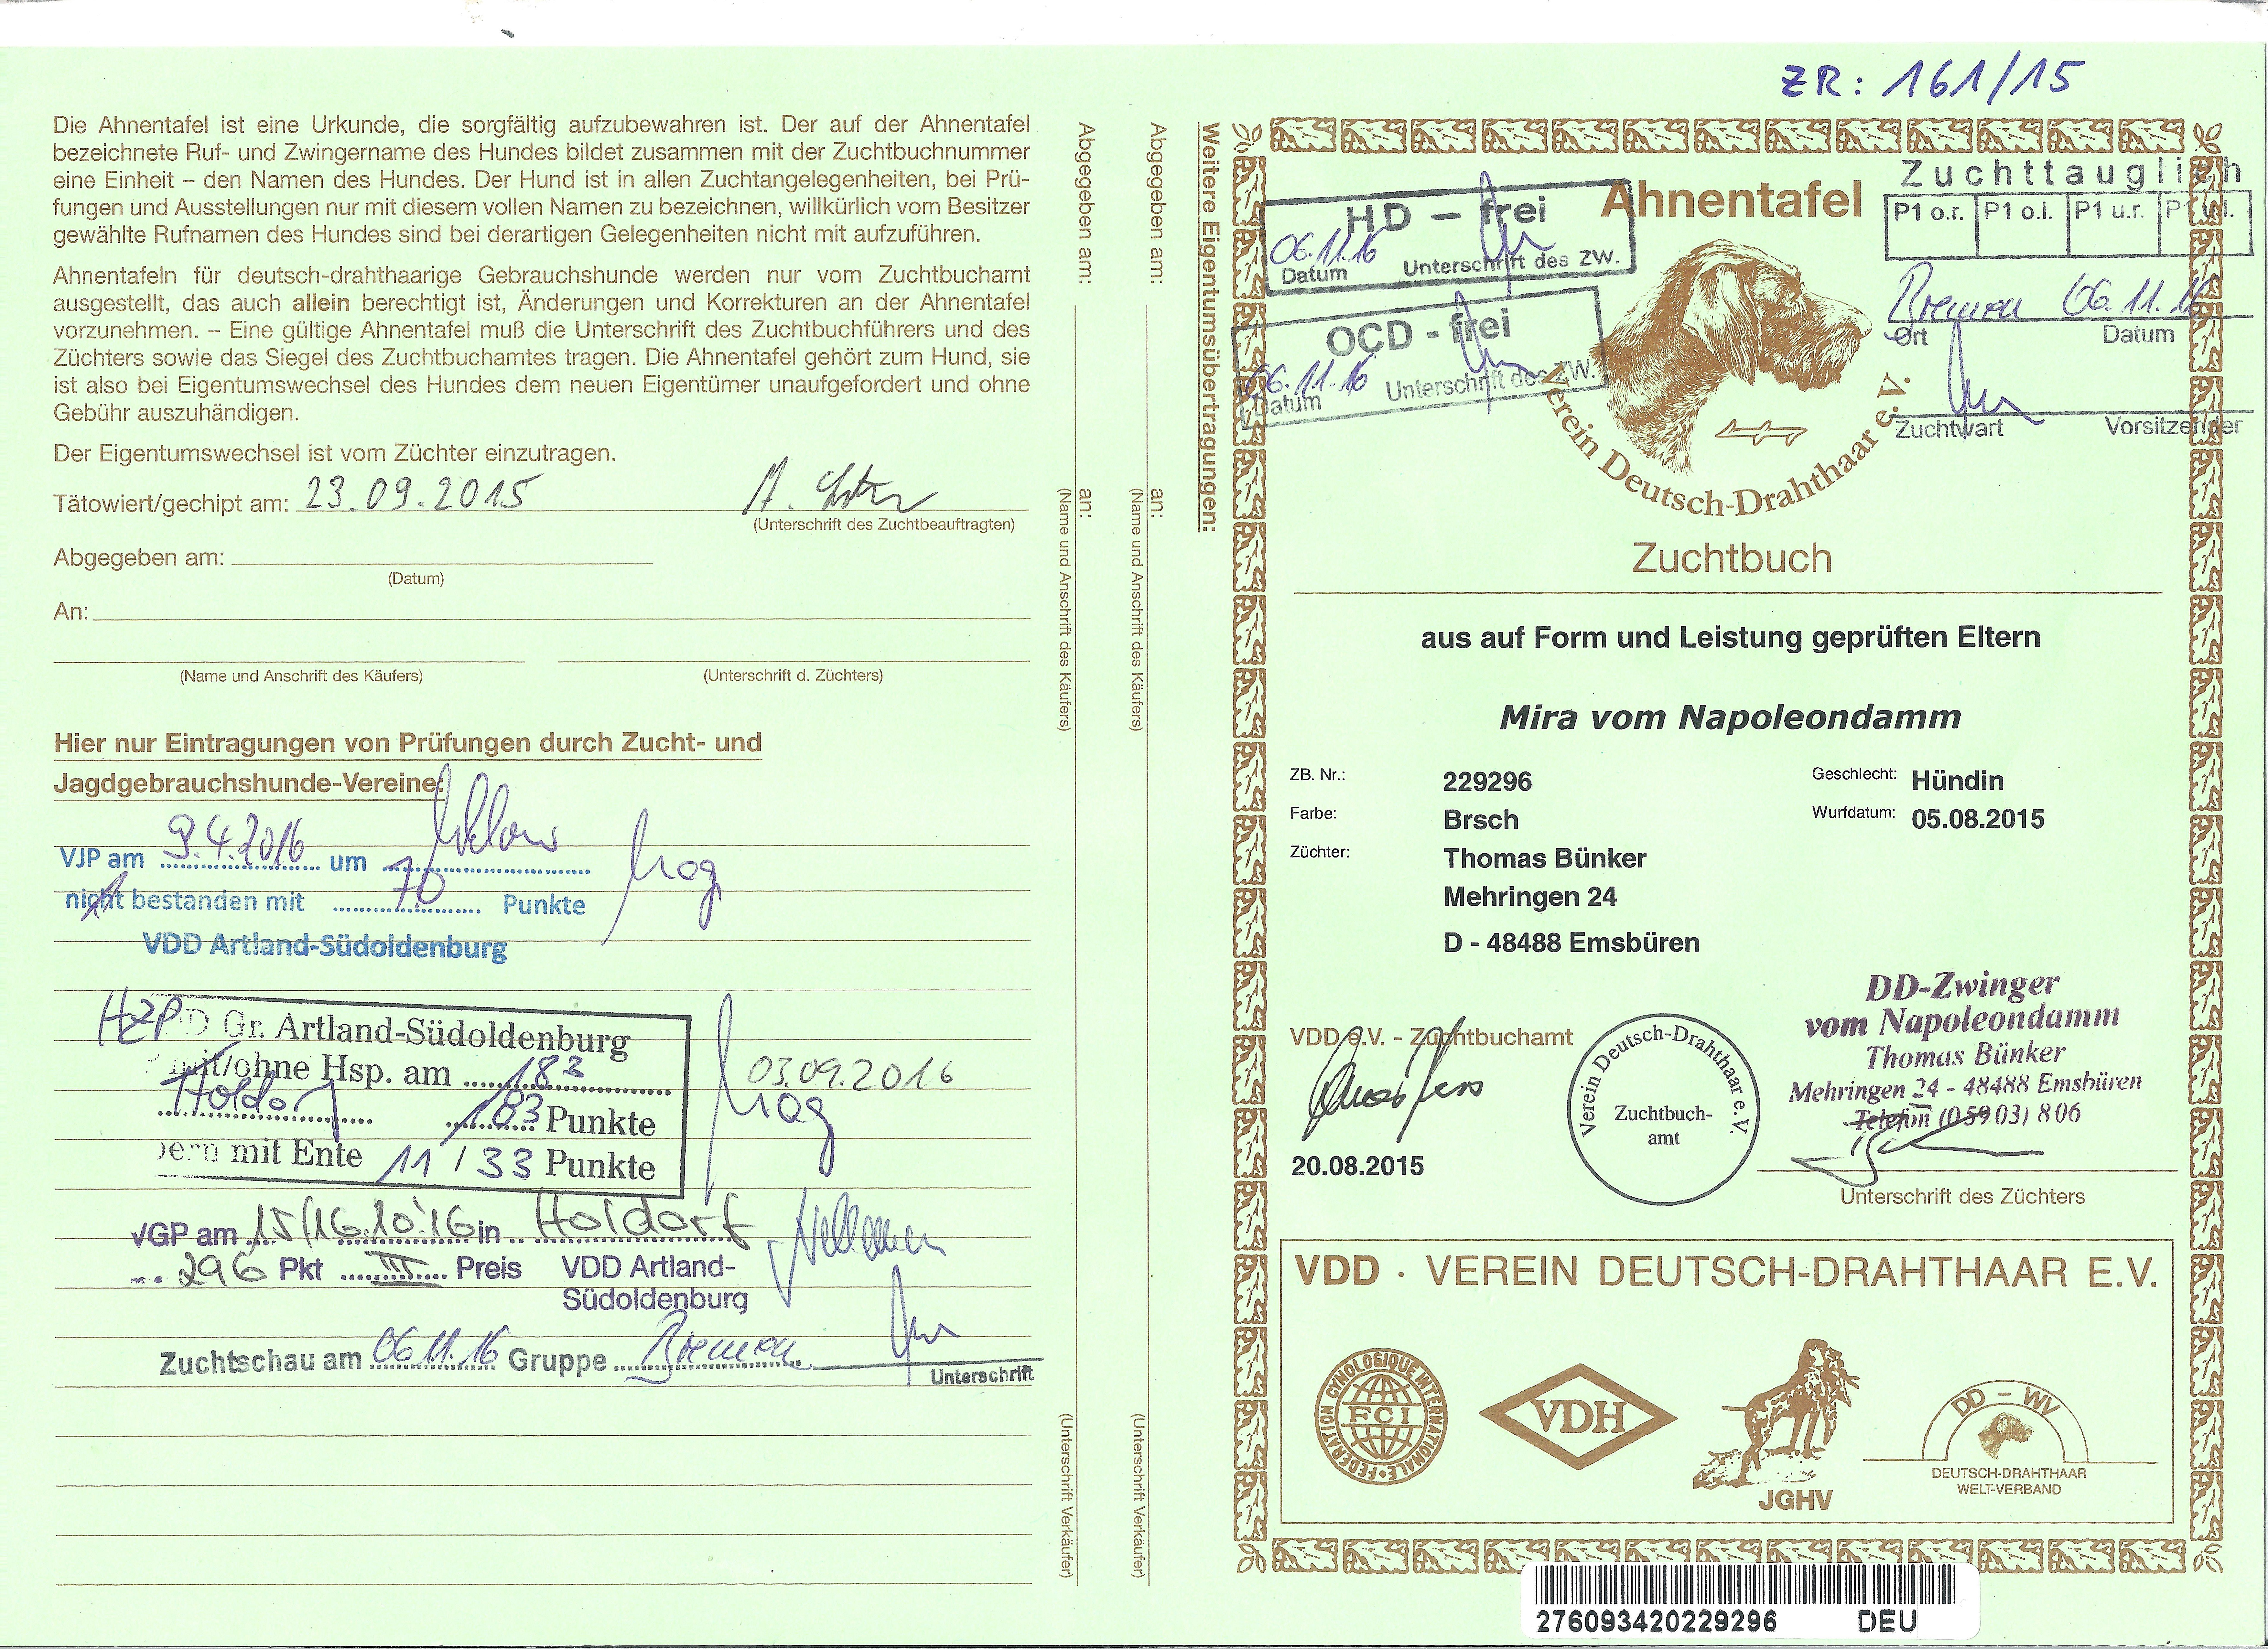 ZR: 161/15
Die Ahnentafel ist eine Urkunde, die sorgfältig aufzubewahren ist. Der auf der Ahnentafel
bezeichnete Ruf- und Zwingername des Hundes bildet zusammen mit der Zuchtbuchnummer
eine Einheit – den Namen des Hundes. Der Hund ist in allen Zuchtangelegenheiten, bei Prü-
fungen und Ausstellungen nur mit diesem vollen Namen zu bezeichnen, willkürlich vom Besitzer
gewählte Rufnamen des Hundes sind bei derartigen Gelegenheiten nicht mit aufzuführen.
Ahnentafeln für deutsch-drahthaarige Gebrauchshunde werden nur vom Zuchtbuchamt
ausgestellt, das auch allein berechtigt ist, Änderungen und Korrekturen an der Ahnentafel
vorzunehmen. – Eine gültige Ahnentafel muß die Unterschrift des Zuchtbuchführers und des
Züchters sowie das Siegel des Zuchtbuchamtes tragen. Die Ahnentafel gehört zum Hund, sie
ist also bei Eigentumswechsel des Hundes dem neuen Eigentümer unaufgefordert und ohne
Gebühr auszuhändigen.
Der Eigentumswechsel ist vom Züchter einzutragen.
Tätowiert/gechipt am: 23.09.2015
(Unterschrift des Zuchtbeauftragten)
Abgegeben am:
(Datum)
An:
(Name und Anschrift des Käufers) (Unterschrift d. Züchters)
Hier nur Eintragungen von Prüfungen durch Zucht- und
Jagdgebrauchshunde-Vereine:
VJP am 9.4.2016 um
nicht bestanden mit 70 Punkte
VDD Artland-Südoldenburg
HZP D Gr. Artland-Südoldenburg
mit/ohne Hsp. am 183
03.09.2016
Holdorf 183 Punkte
mit Ente 11 / 33 Punkte
VGP am 15/16.10.'16 in Holdorf
296 Pkt III Preis VDD Artland-
Südoldenburg
Zuchtschau am 06.11.16 Gruppe Bremen
Unterschrift
Abgegeben am: an:
(Name und Anschrift des Käufers)
(Unterschrift Verkäufer)
Abgegeben am: an:
(Name und Anschrift des Käufers)
(Unterschrift Verkäufer)
Weitere Eigentumsübertragungen:
HD – frei
06.11.16
Datum Unterschrift des ZW.
OCD - frei
06.11.16
Datum Unterschrift des ZW.
Ahnentafel
Zuchttauglich
P1 o.r. P1 o.l. P1 u.r. P1 u.l.
Bremen 06.11.16
Ort Datum
Zuchtwart Vorsitzender
Verein Deutsch-Drahthaar e.V.
Zuchtbuch
aus auf Form und Leistung geprüften Eltern
Mira vom Napoleondamm
ZB. Nr.: 229296 Geschlecht: Hündin
Farbe: Brsch Wurfdatum: 05.08.2015
Züchter: Thomas Bünker
Mehringen 24
D - 48488 Emsbüren
VDD e.V. - Zuchtbuchamt
20.08.2015
Verein Deutsch-Drahthaar e. V.
Zuchtbuch-
amt
DD-Zwinger
vom Napoleondamm
Thomas Bünker
Mehringen 24 - 48488 Emsbüren
Telefon (05903) 806
Unterschrift des Züchters
VDD · VEREIN DEUTSCH-DRAHTHAAR E.V.
FEDERATION CYNOLOGIQUE INTERNATIONALE
FCI
VDH
JGHV
DD – WV
DEUTSCH-DRAHTHAAR
WELT-VERBAND
276093420229296 DEU